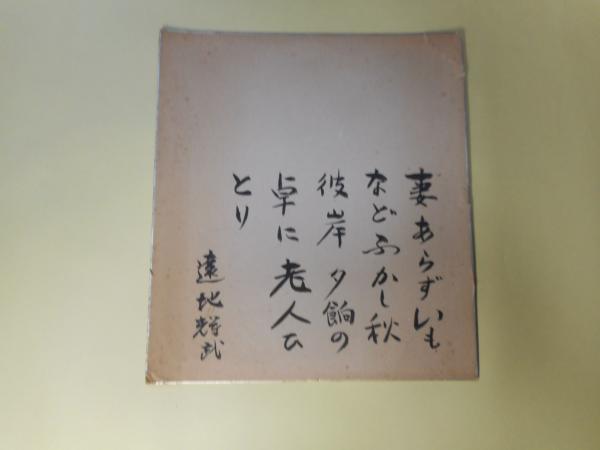 妻あらずいも
などふかし秋
彼岸夕餉の
卓に老人ひ
とり
遠地輝武